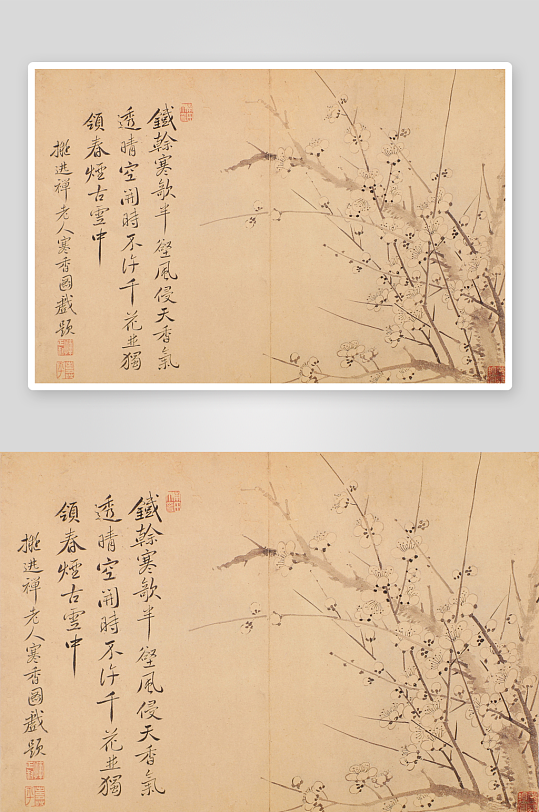 鐵幹寒欹半壑風侵天香氣
透晴空開時不許千花並獨
領春煙古雪中
擬逃禪老人寒香圖戲題
鐵幹寒欹半壑風侵天香氣
透晴空開時不許千花並獨
領春煙古雪中
擬逃禪老人寒香圖戲題